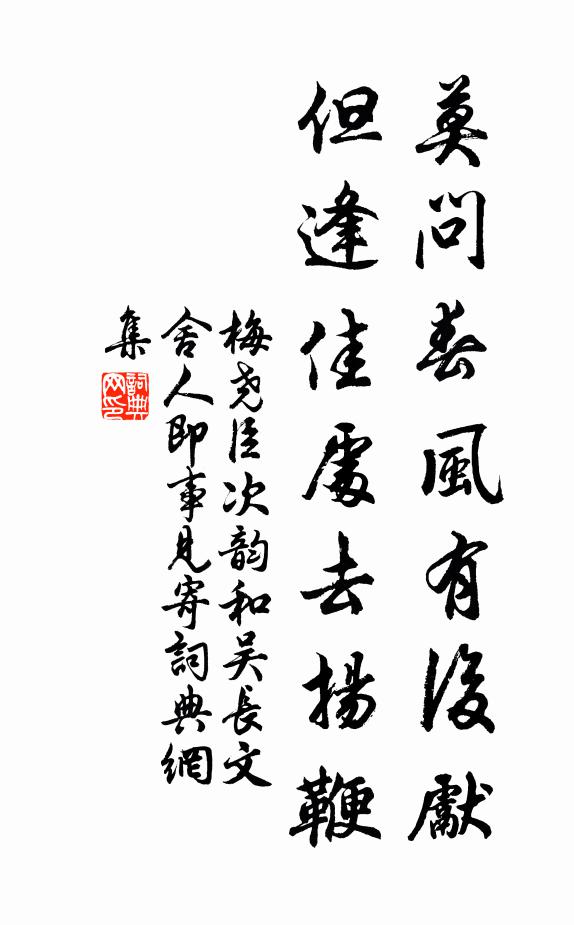 莫問春風有後獻
但逢佳處去揚鞭
梅堯臣次韵和吴長文
舍人即事見寄詞典網
集
詞典
网印